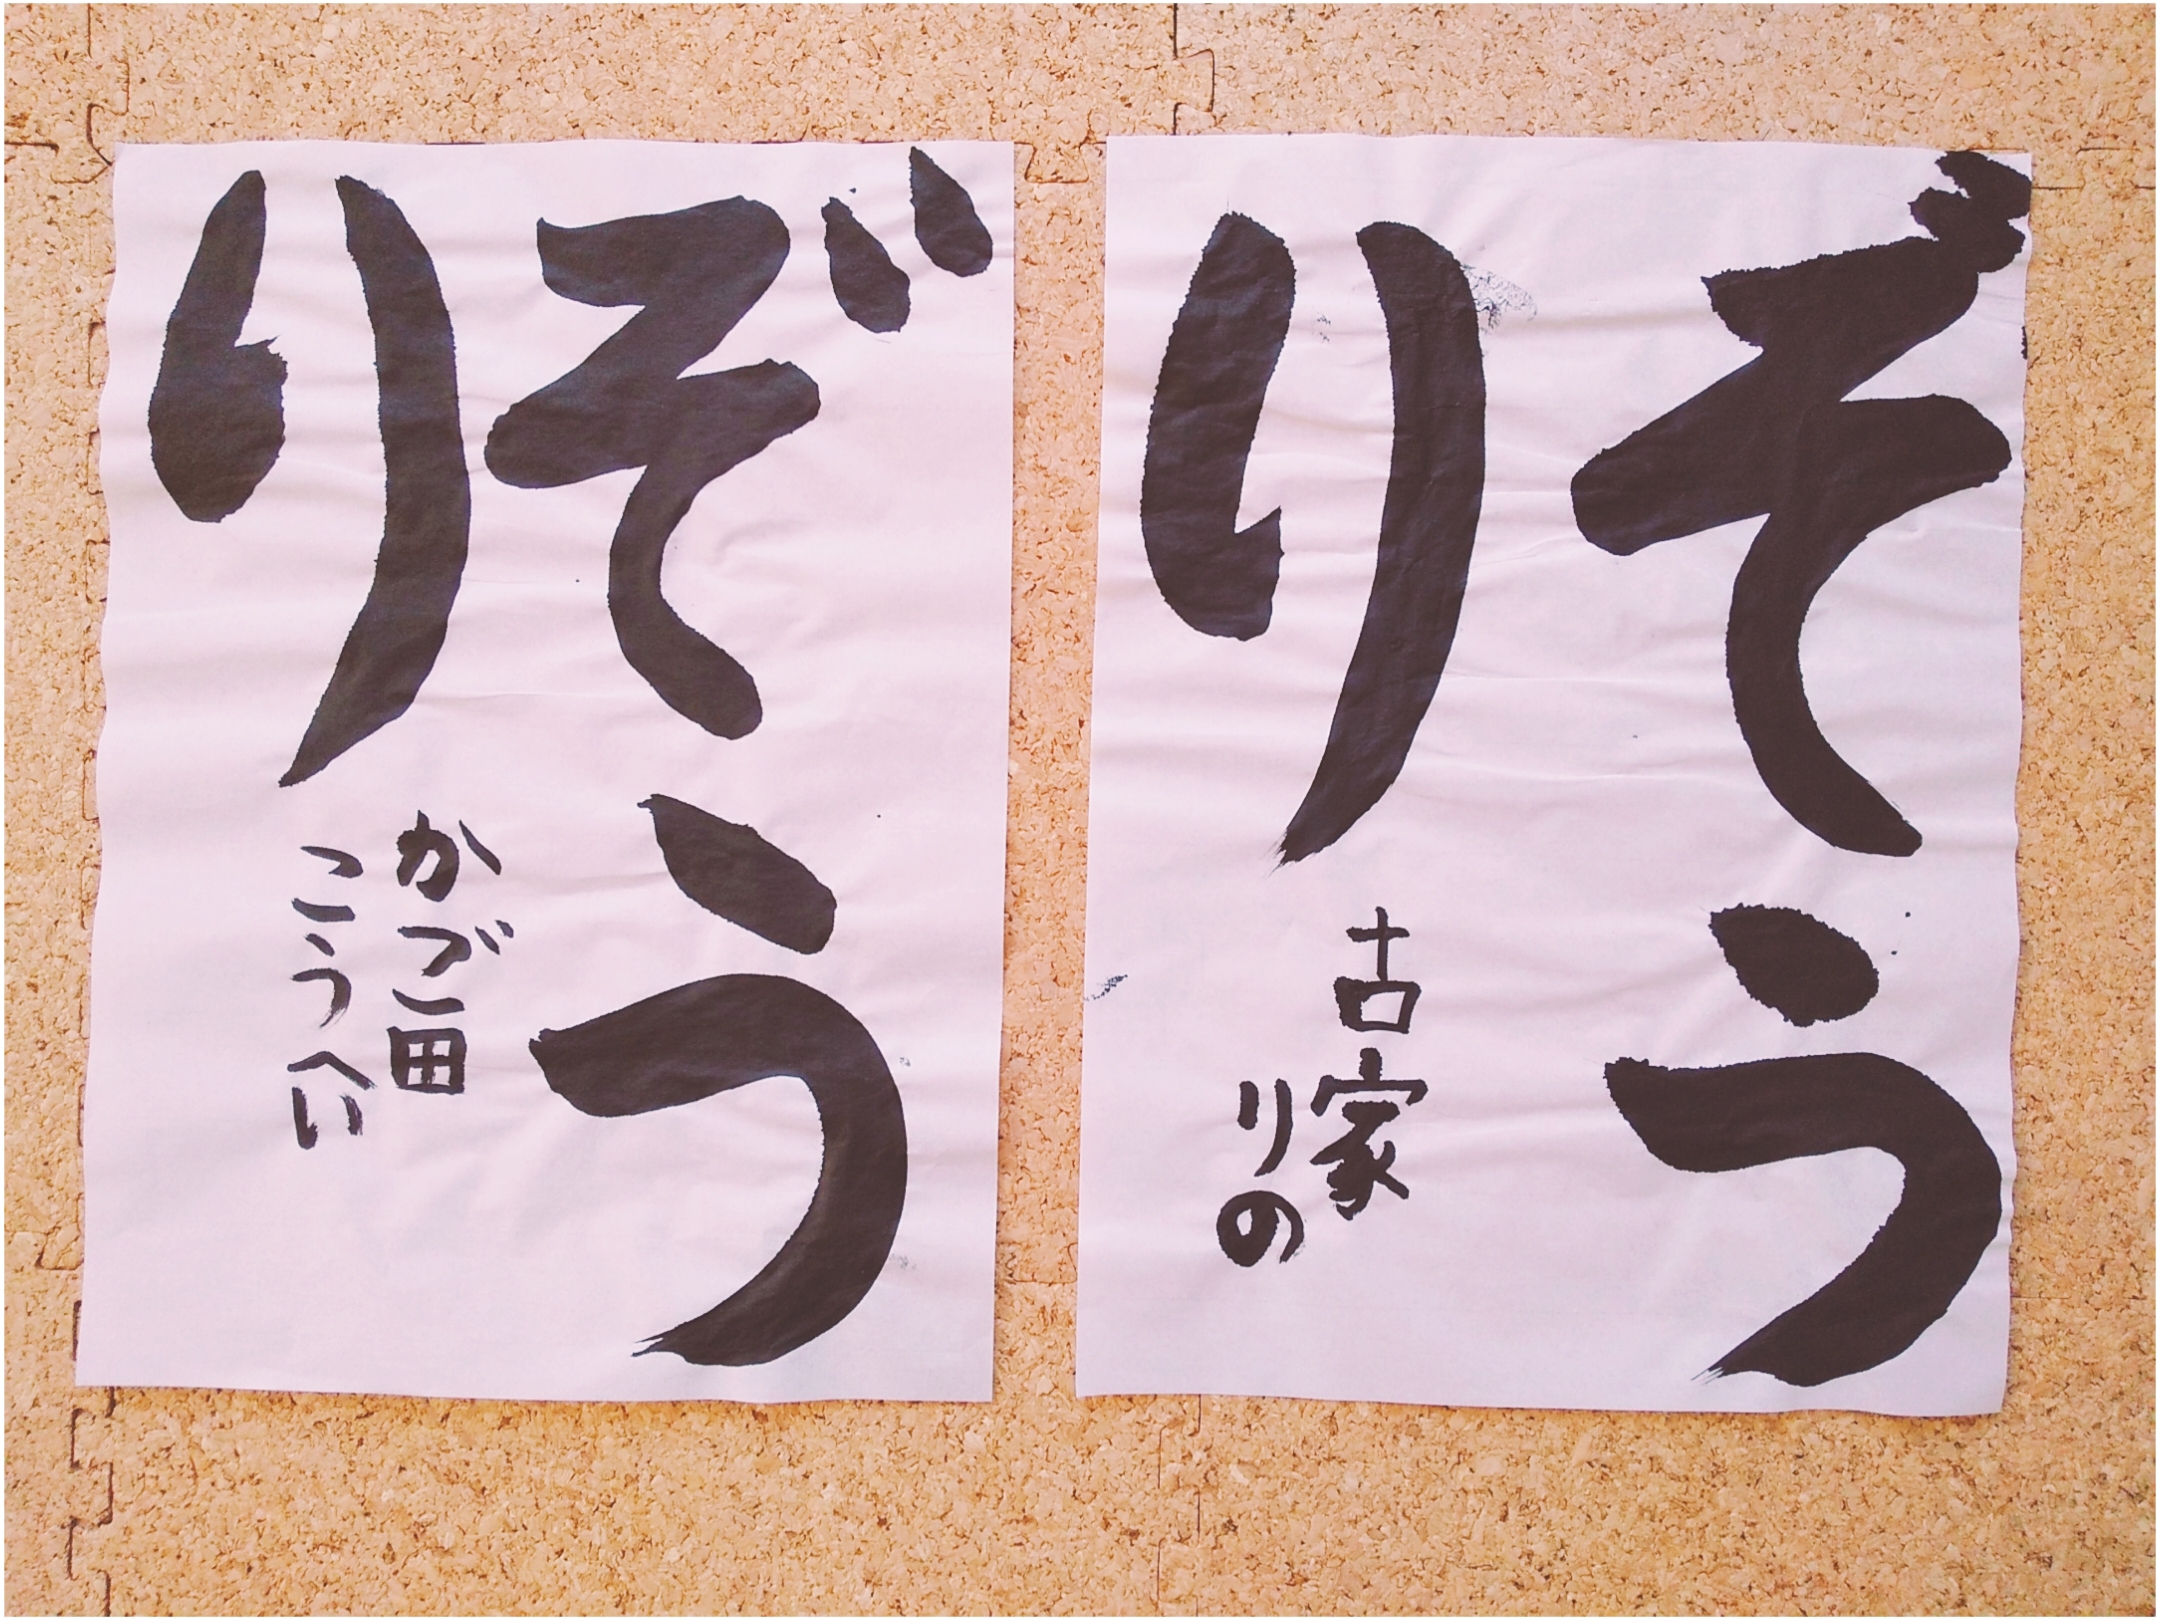 ぞう
り
古家
りの
ぞう
り
かご田
こうへい